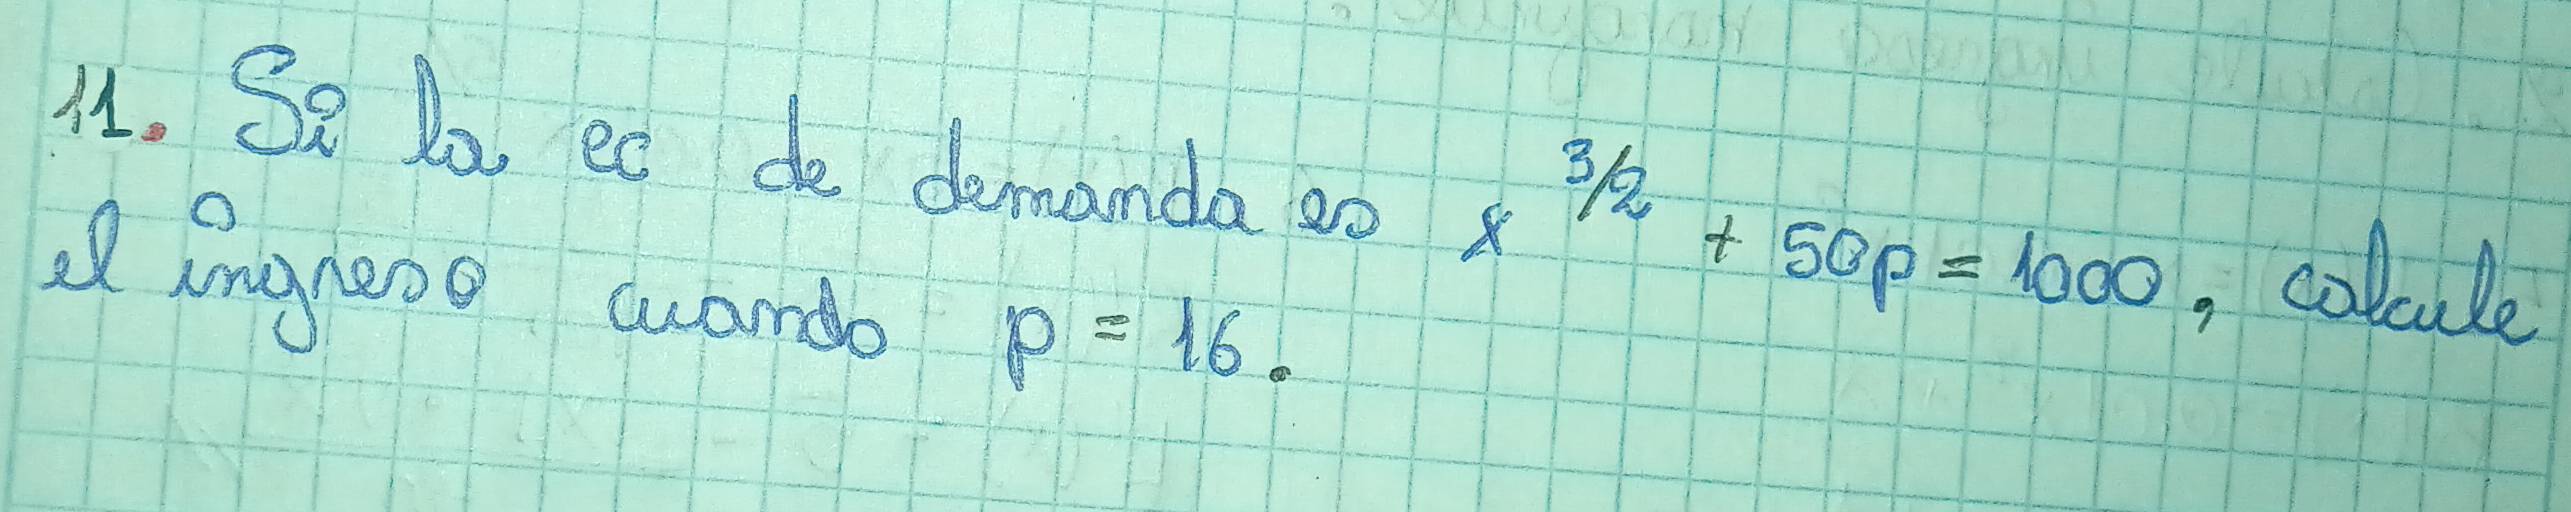 11. Si la ec de demanda es x^3/2 + 50p = 1000, calcule
el ingreso cuando p = 16.